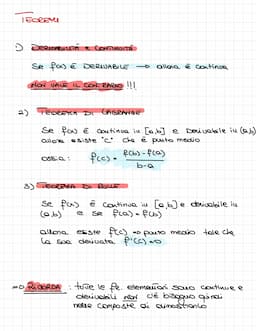 TEOREMI
1) DERIVABILITÀ e CONTINUITÀ
Se f(x) è DERIVABILE → allora è continua
NON VALE IL CONTRARIO !!!
2) TEOREMA DI LAGRANGE
Se f(x) è continua in [a,b] e derivabile in (a,b)
allora esiste "c" che è punto medio
OSSIA: f'(c) = f(b)-f(a)
b-a
3) TEOREMA DI ROLLE
Se f(x) è continua in [a,b] e derivabile in
(a,b) e se f(a) = f(b)
allora esiste f(c) => punto medio tale che
la sua derivata f'(c) = 0
=> RICORDA : tutte le fz. elementari sono continue e
derivabili non c'è bisogno quindi
nelle composte di dimostrarlo